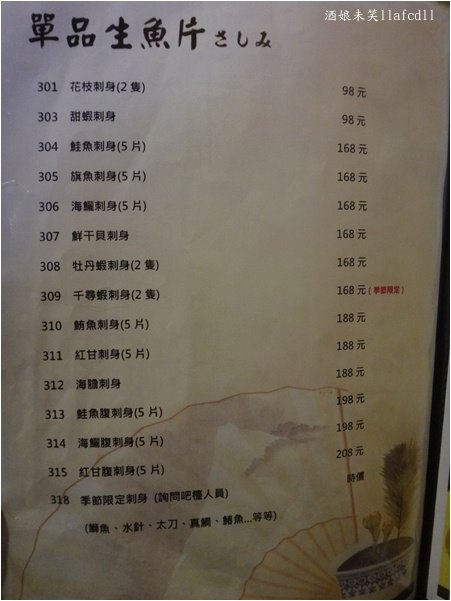 酒娘未笑llafcdll
單品生魚片 さしみ
301 花枝刺身(2 隻) 98元
303 甜蝦刺身 98元
304 鮭魚刺身(5 片) 168元
305 旗魚刺身(5 片) 168元
306 海鱺刺身(5 片) 168元
307 鮮干貝刺身 168元
308 牡丹蝦刺身(2 隻) 168元
309 千尋蝦刺身(2 隻) 168元(季節限定)
310 鮪魚刺身(5 片) 188元
311 紅甘刺身(5 片) 188元
312 海膽刺身 188元
313 鮭魚腹刺身(5 片) 198元
314 海鱺腹刺身(5 片) 198元
315 紅甘腹刺身(5 片) 208元
318 季節限定刺身 (詢問吧檯人員) 時價
(鰤魚、水針、太刀、真鯛、鰆魚...等等)